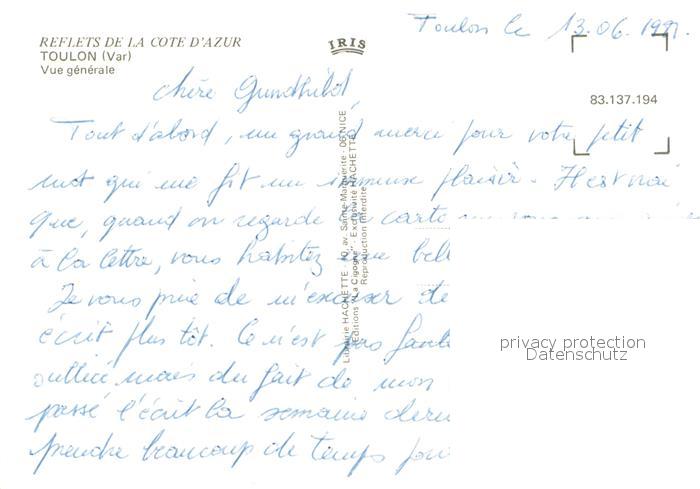 Toulon le 13.06.1991.
REFLETS DE LA COTE D'AZUR
TOULON (Var)
Vue générale
IRIS
83.137.194
Chère Gundhild,
Tout d'abord, un grand merci pour votre petit
mot qui me fit un immense plaisir. Il est vrai
que, quand on regarde la carte
à la lettre, vous habitez une bell
Je vous prie de m'excuser de
écrit plus tôt. Ce n'est pas faute
oublié mais du fait de mon
passé l'écrit la semaine derni
prendre beaucoup de temps pour
Librairie HACHETTE - 10, av. Sainte-Marguerite - 06 NICE
Editions "La Cigogne" - Exclusivité HACHETTE
Reproduction interdite
privacy protection
Datenschutz